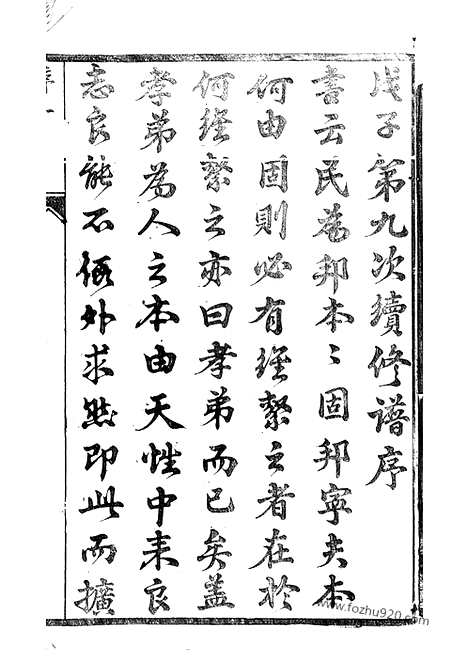 戊子第九次續修譜序
書云民為邦本〻固邦寧夫本
何由固則必有維繫之者在於
何維繫之亦曰孝弟而已矣蓋
孝弟為人之本由天性中来良
志良能不假外求然即此而擴
www.fozhu920.com